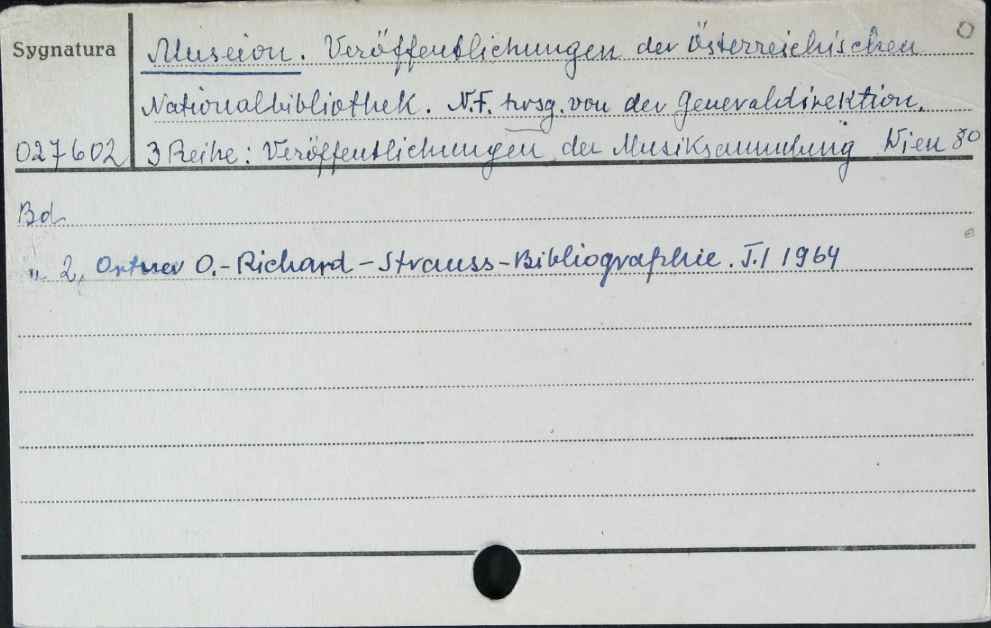 Sygnatura Museion. Veröffentlichungen der Österreichischen
Nationalbibliothek. N.F. hrsg. von der Generaldirektion.
027602 3 Reihe: Veröffentlichungen der Musiksammlung Wien 8°
Bd
" 2, Ortner O.-Richard-Strauss-Bibliographie. T.I 1964